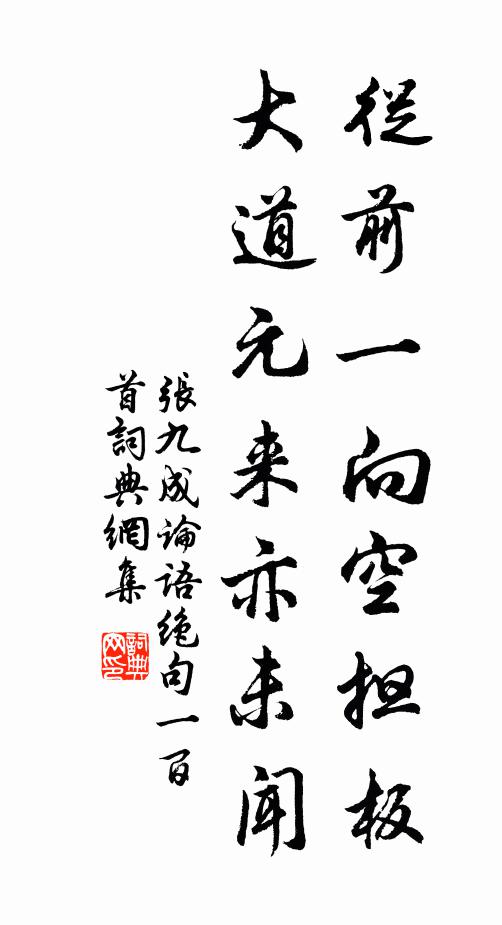 從前一向空担板
大道元来亦未聞
張九成論語絶句一百
首詞典網集
詞典网印